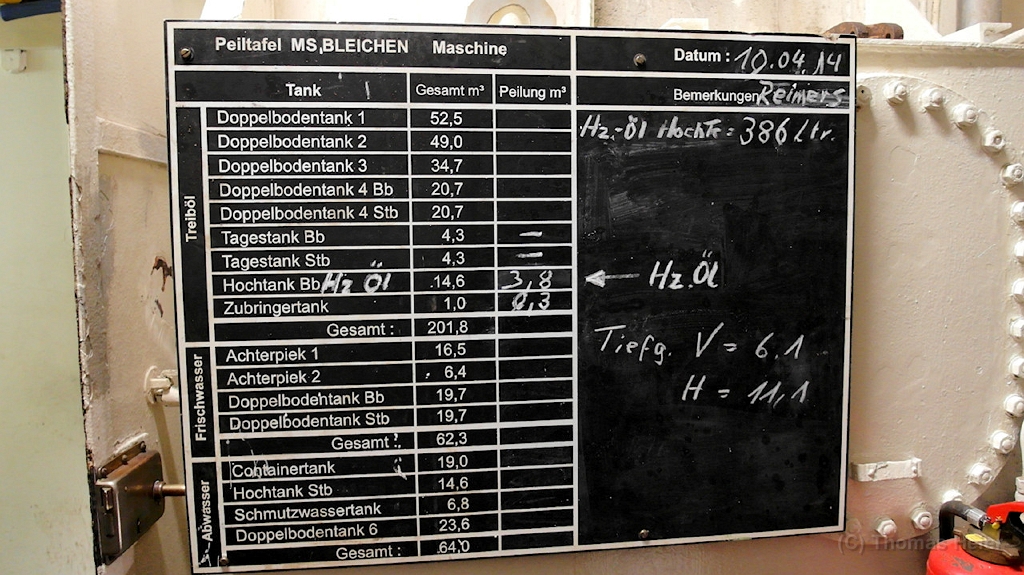 Peiltafel MS,BLEICHEN Maschine Datum : 10.04.14
Tank Gesamt m³ Peilung m³ Bemerkungen Reimers
Treiböl
Doppelbodentank 1 52,5 Hz.-Öl Hochtk = 386 Ltr.
Doppelbodentank 2 49,0
Doppelbodentank 3 34,7
Doppelbodentank 4 Bb 20,7
Doppelbodentank 4 Stb 20,7
Tagestank Bb 4,3 –
Tagestank Stb 4,3 –
Hochtank Bb Hz Öl 14,6 3,8 ← Hz.Öl
Zubringertank 1,0 0,3
Gesamt : 201,8 Tiefg. V = 6.1
Frischwasser
Achterpiek 1 16,5
Achterpiek 2 6,4 H = 11,1
Doppelbodentank Bb 19,7
Doppelbodentank Stb 19,7
Gesamt : 62,3
Abwasser
Containertank 19,0
Hochtank Stb 14,6
Schmutzwassertank 6,8
Doppelbodentank 6 23,6
Gesamt : 64,0
(C) Thomas